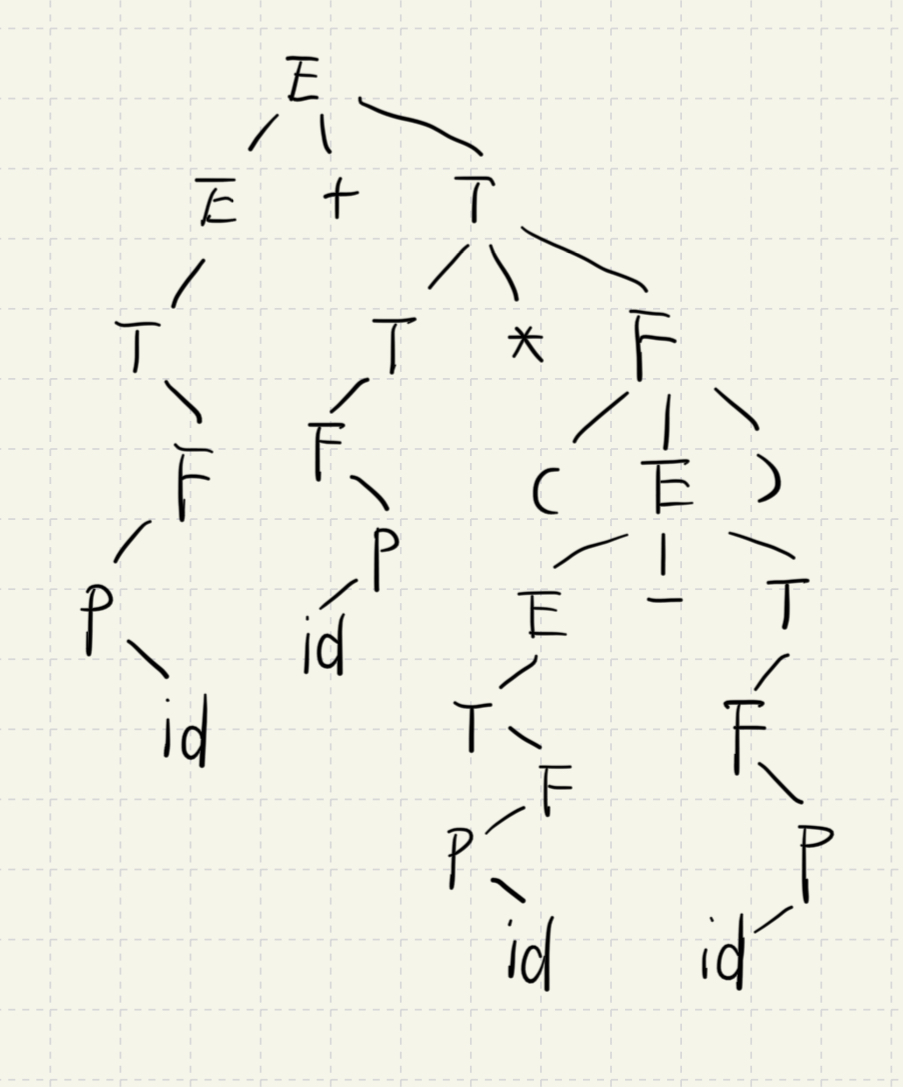 E
E + T
T T * F
F F ( E )
P P E - T
id id T F
id F P P
id id